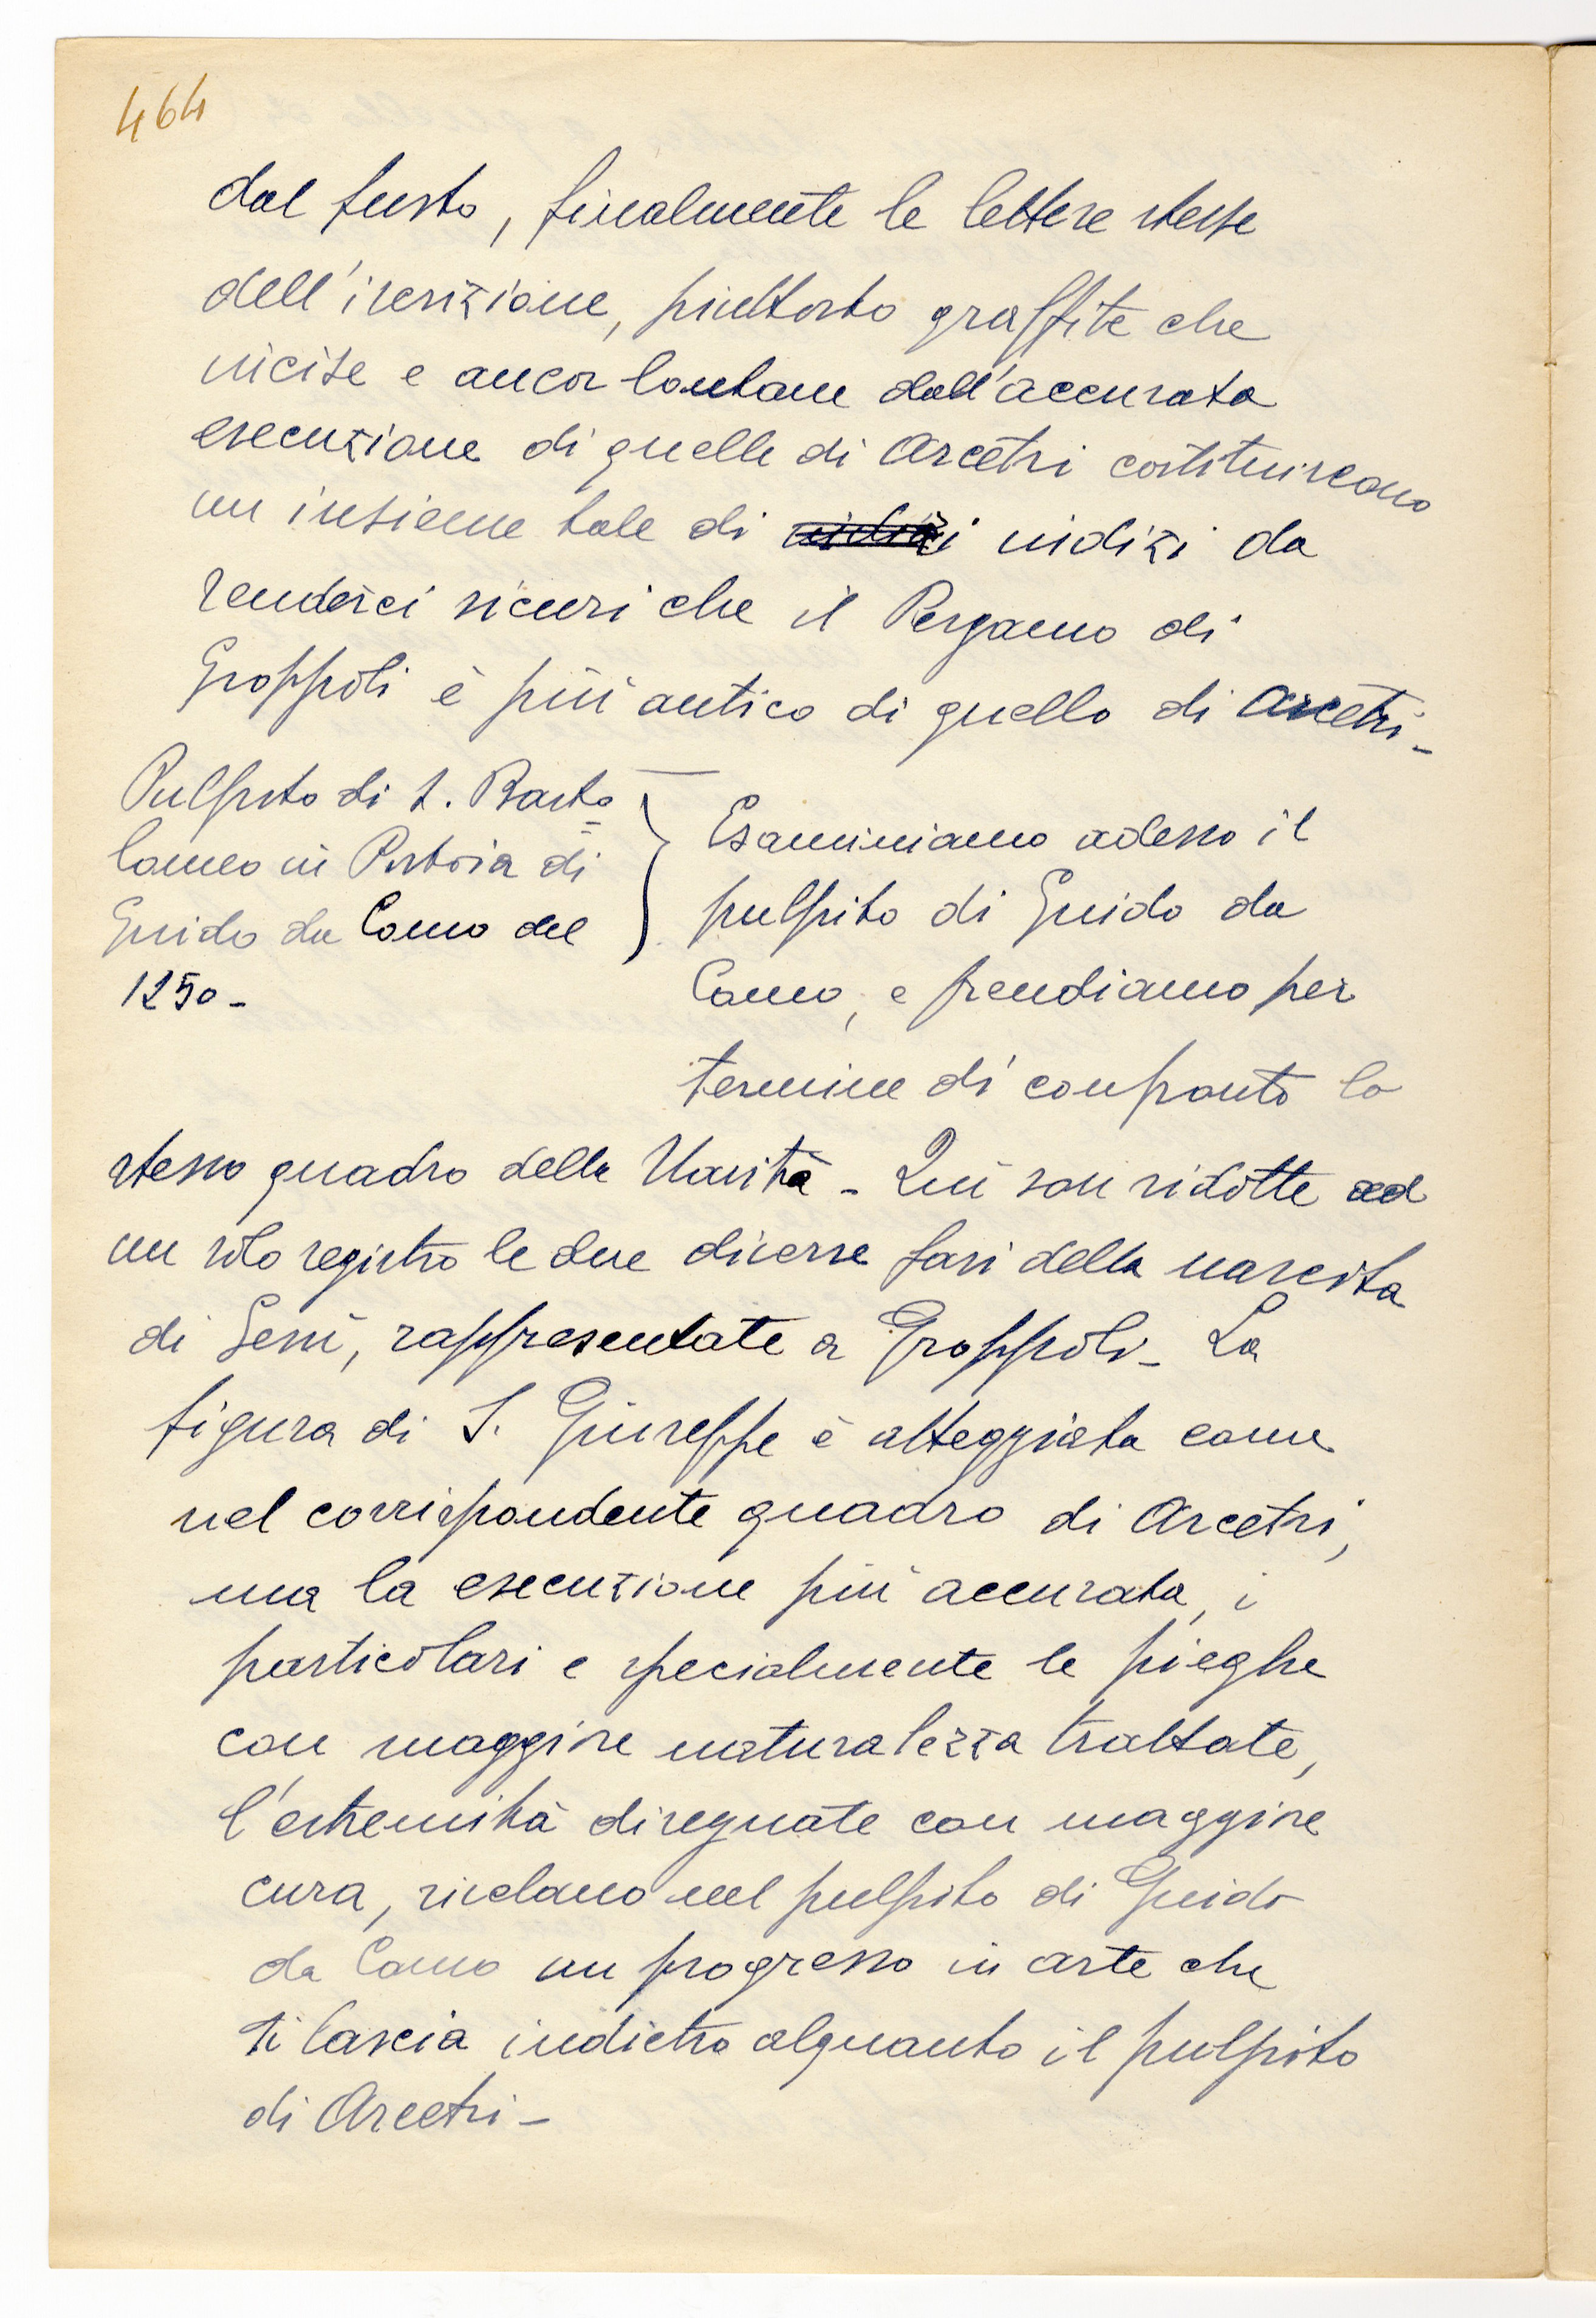 464
dal fusto, finalmente le lettere stesse
dell'iscrizione, piuttosto graffite che
incise e ancor lontane dall'accurata
esecuzione di quelle di Arcetri costituiscono
un insieme tale di indizi indizi da
renderci sicuri che il Pergamo di
Groppoli è più antico di quello di Arcetri -
Pulpito di S. Barto=
lomeo in Pistoia di
Guido da Como del
1250 -
Esaminiamo adesso il
pulpito di Guido da
Como, e prendiamo per
termine di confronto lo
stesso quadro della Natività - Qui son ridotte ad
un solo registro le due diverse fasi della nascita
di Gesù, rappresentate a Groppoli - La
figura di S. Giuseppe è atteggiata come
nel corrispondente quadro di Arcetri,
ma la esecuzione più accurata, i
particolari e specialmente le pieghe
con maggiore naturalezza trattate,
l'estremità disegnate con maggiore
cura, rivelano nel pulpito di Guido
da Como un progresso in arte che
si lascia indietro alquanto il pulpito
di Arcetri -